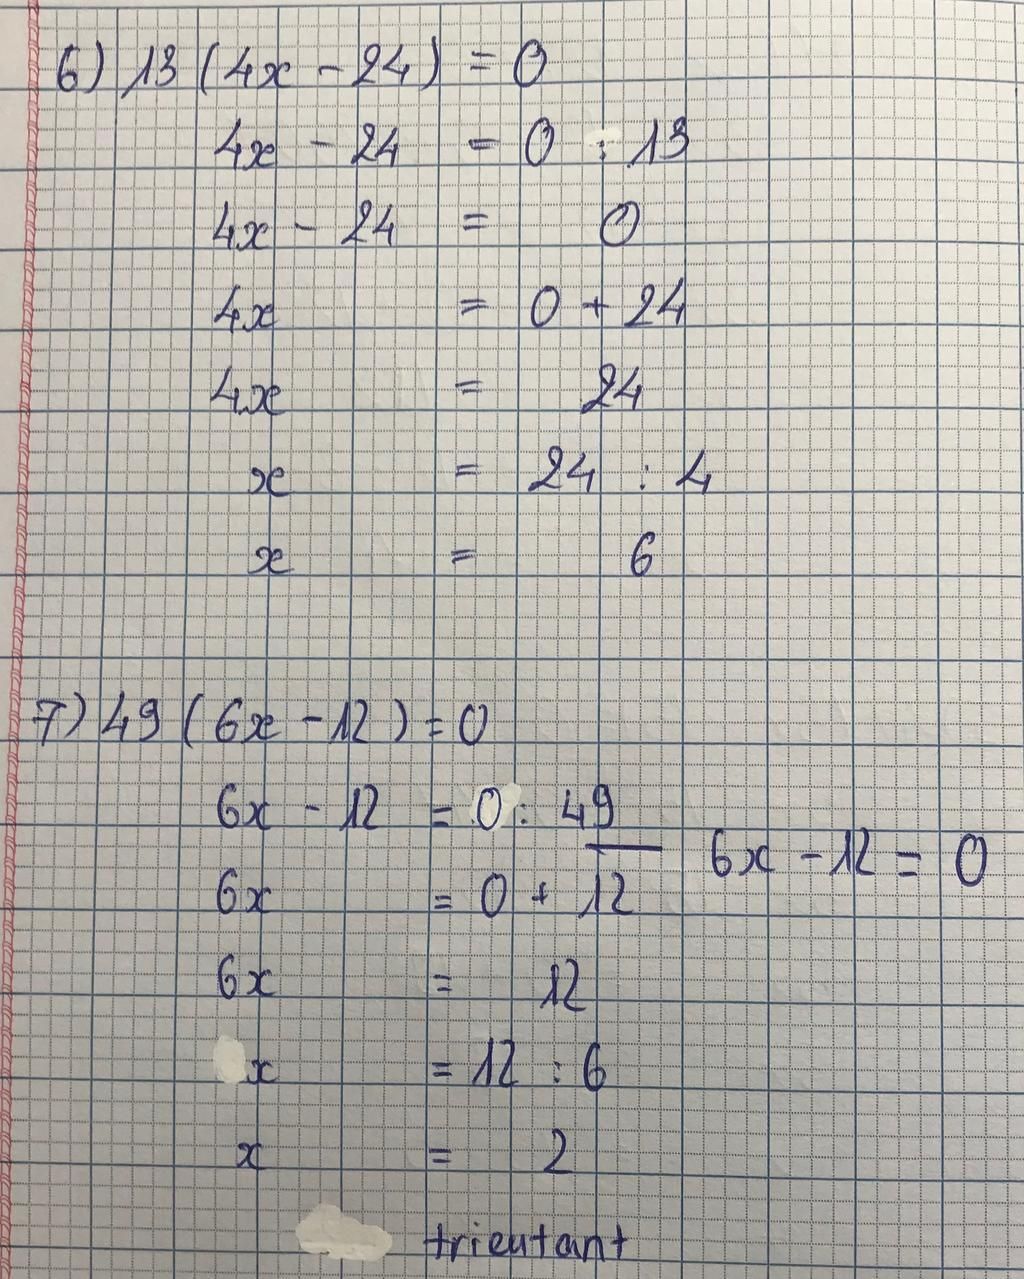 6) 13 (4x - 24) = 0
4x - 24 = 0 : 13
4x - 24 = 0
4x = 0 + 24
4x = 24
x = 24 : 4
x = 6
7) 49 (6x - 12) = 0
6x - 12 = 0 : 49
6x - 12 = 0
6x = 0 + 12
6x = 12
x = 12 : 6
x = 2
trieutant